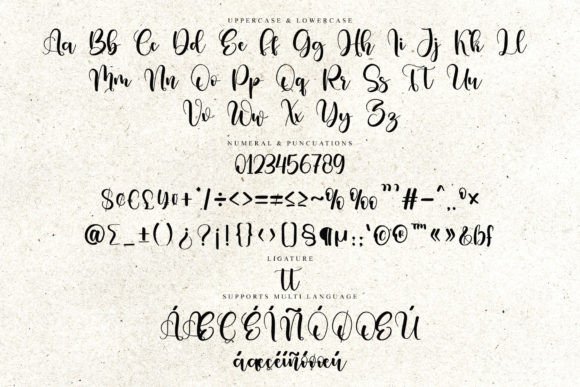 UPPERCASE & LOWERCASE
Aa Bb Cc Dd Ee Ff Gg Hh Ii Jj Kk Ll
Mm Nn Oo Pp Qq Rr Ss Tt Uu
Vv Ww Xx Yy Zz
NUMERAL & PUNCUATIONS
0123456789
$¢€£¥¤+·/÷<>=≠≤≥~%‰"'#-^¸.ºx
@Σ_±()¿?¡!{}‹›[]§¶µ:;'©®™«»&bf
LIGATURE
tt
SUPPORTS MULTI LANGUAGE
ÁÆÇÉÍÑÓØŒÚ
áæçéíñóøœú